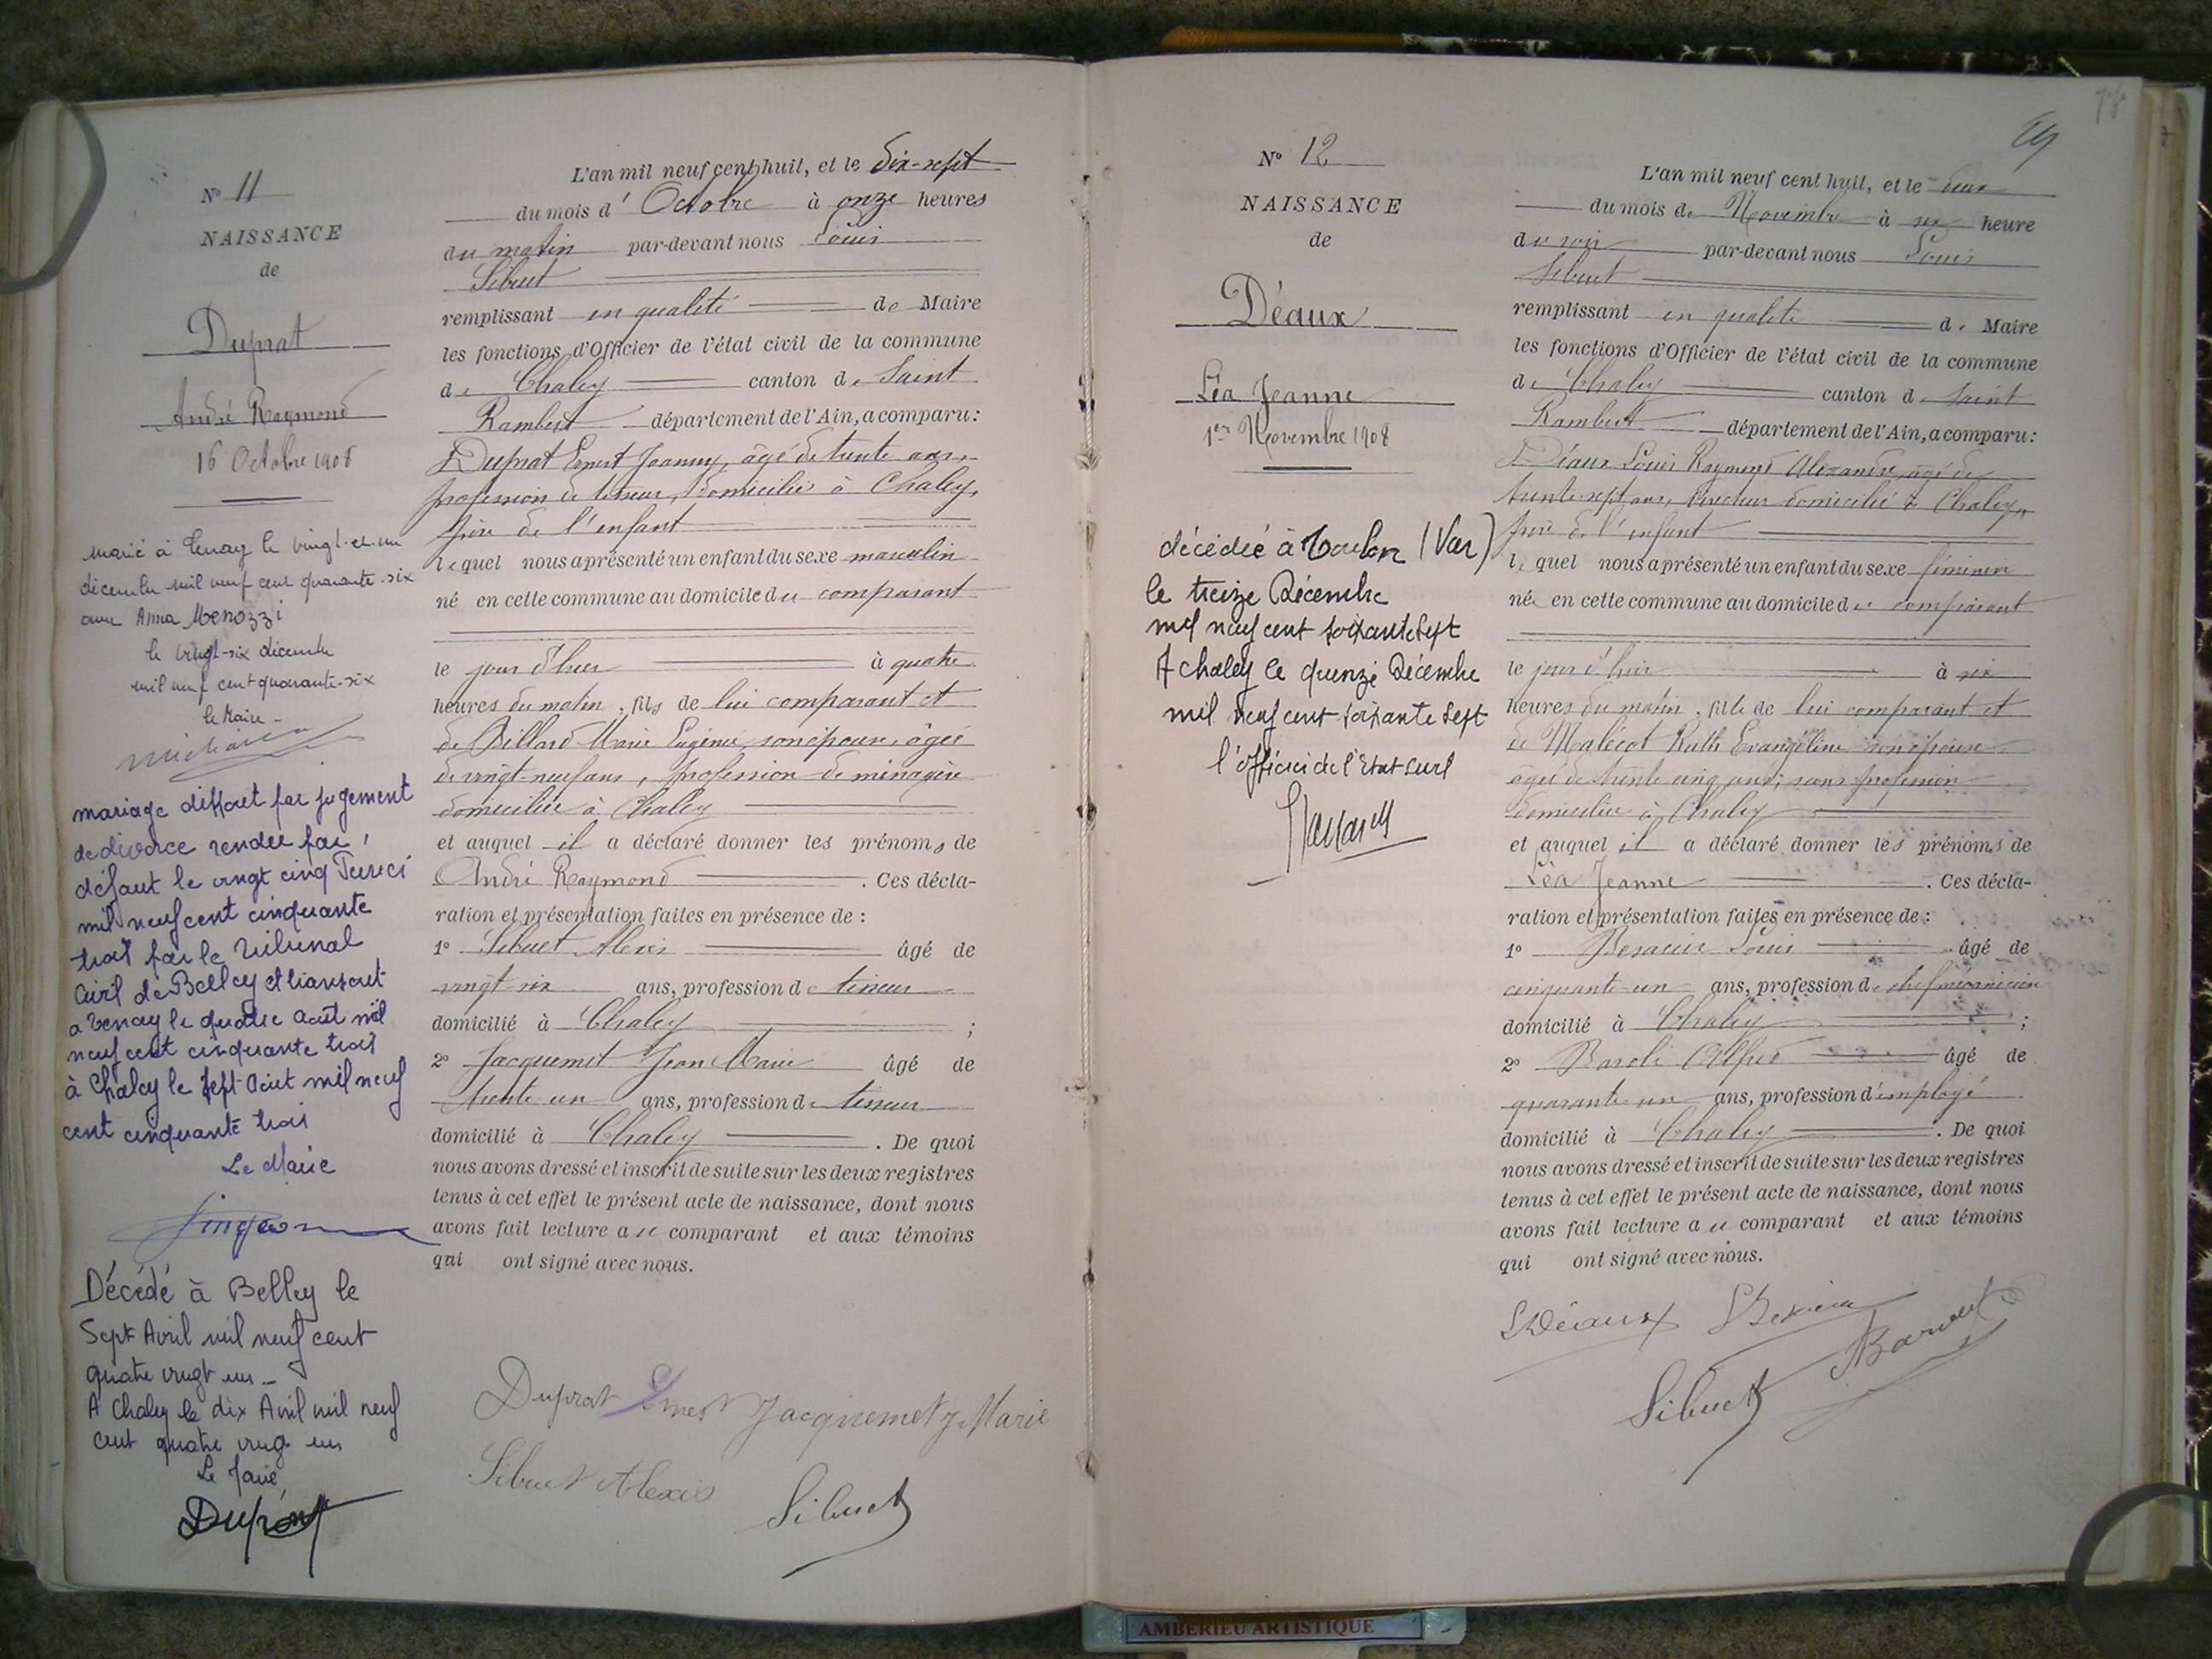 N° 11
NAISSANCE
de
Duprat
André Raymond
16 Octobre 1908
marié à Tenay le vingt-et-un
décembre mil neuf cent quarante-six
avec Anna Menozzi
le vingt-six décembre
mil neuf cent quarante-six
le Maire
mariage dissout par jugement
de divorce rendu par
défaut le vingt cinq
mil neuf cent cinquante
trois par le Tribunal
Civil de Belley et transcrit
a Tenay le quatre août mil
neuf cent cinquante trois
à Chaley le sept Aout mil neuf
cent cinquante trois
Le Maire
Décédé à Belley le
Sept Avril mil neuf cent
quatre vingt un
A Chaley le dix Avril mil neuf
cent quatre vingt un
Le Maire
L'an mil neuf cent huit, et le dix-sept
du mois d'Octobre à onze heures
du matin par-devant nous Louis
Sibuet
remplissant en qualité de Maire
les fonctions d'Officier de l'état civil de la commune
de Chaley canton de Saint
Rambert département de l'Ain, a comparu :
Duprat Ernest Joanny, âgé de trente ans,
profession de tisseur, domicilié à Chaley,
père de l'enfant
lequel nous a présenté un enfant du sexe masculin
né en cette commune au domicile du comparant
le jour d'hier à quatre
heures du matin, fils de lui comparant et
de Billard Marie Eugénie, son épouse, âgée
de vingt-neuf ans, profession de ménagère
domiciliée à Chaley
et auquel il a déclaré donner les prénoms de
André Raymond . Ces décla-
ration et présentation faites en présence de :
1° Sibuet Alexis âgé de
vingt-six ans, profession de tisseur
domicilié à Chaley ;
2° Jacquemet Jean Marie âgé de
trente un ans, profession de tisseur
domicilié à Chaley . De quoi
nous avons dressé et inscrit de suite sur les deux registres
tenus à cet effet le présent acte de naissance, dont nous
avons fait lecture au comparant et aux témoins
qui ont signé avec nous.
Duprat Ernest Jacquemet J Marie
Sibuet Alexis Sibuet
N° 12
NAISSANCE
de
Déaux
Léa Jeanne
1er Novembre 1908
décédée à Toulon (Var)
le treize Décembre
mil neuf cent soixante sept
A chaley le quinze Décembre
mil neuf cent soixante sept
l'officier de l'Etat civil
L'an mil neuf cent huit, et le deux
du mois de Novembre à six heure
du soir par-devant nous Louis
Sibuet
remplissant en qualité de Maire
les fonctions d'Officier de l'état civil de la commune
de Chaley canton de Saint
Rambert département de l'Ain, a comparu :
Déaux Louis Raymond Alexandre, âgé de
trente-sept ans, Directeur domicilié à Chaley,
père de l'enfant
lequel nous a présenté un enfant du sexe féminin
née en cette commune au domicile du comparant
le jour d'hier à six
heures du matin, fille de lui comparant et
de Malécot Ruth Evangéline son épouse
âgée de trente cinq ans, sans profession
domiciliée à Chaley
et auquel il a déclaré donner les prénoms de
Léa Jeanne . Ces décla-
ration et présentation faites en présence de :
1° Louis âgé de
cinquante-un ans, profession de chef mécanicien
domicilié à Chaley ;
2° Alfred âgé de
quarante un ans, profession d'employé
domicilié à Chaley . De quoi
nous avons dressé et inscrit de suite sur les deux registres
tenus à cet effet le présent acte de naissance, dont nous
avons fait lecture au comparant et aux témoins
qui ont signé avec nous.
LDéaux
Sibuet
AMBERIEU ARTISTIQUE